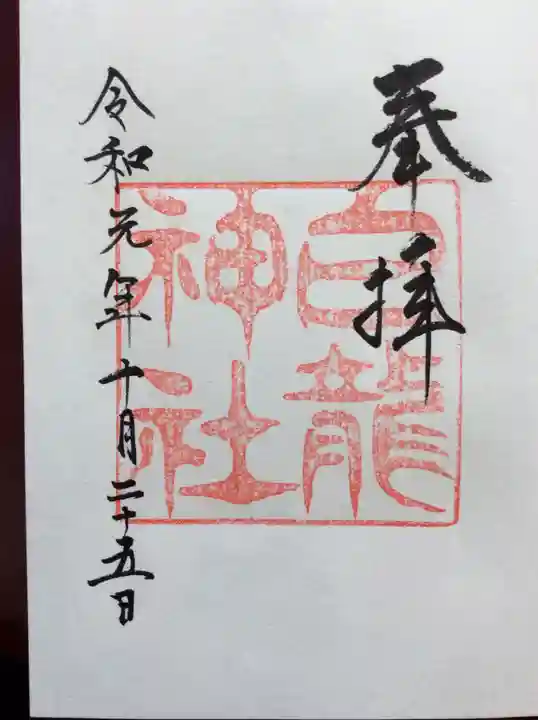 奉拝
白龍
神社
令和元年十月二十五日